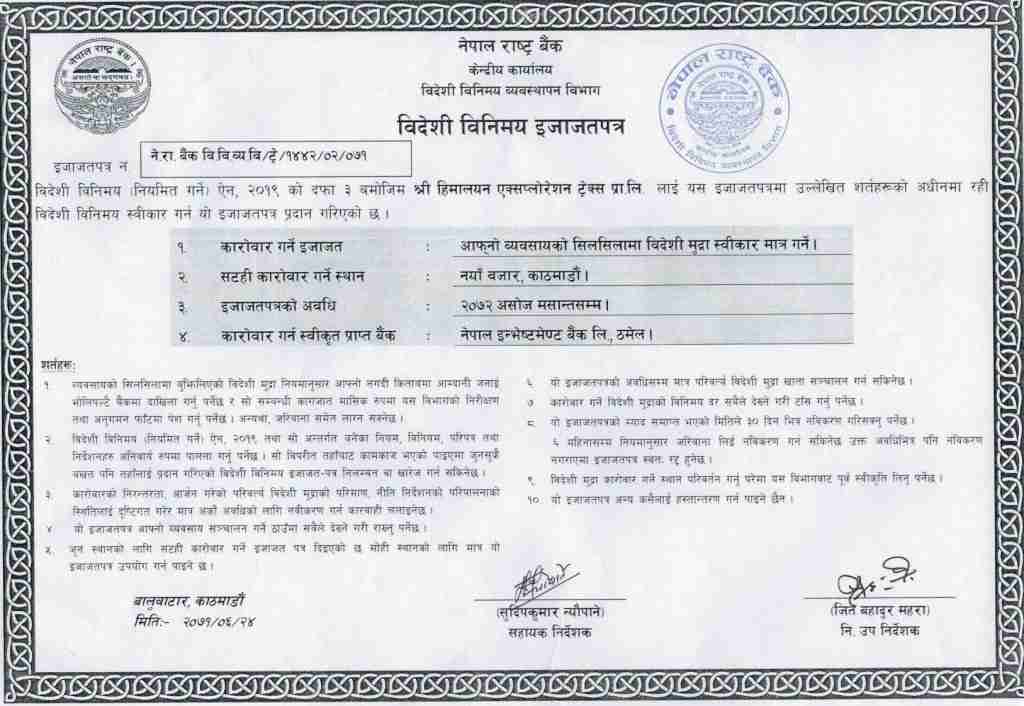 नेपाल राष्ट्र बैंक
केन्द्रीय कार्यालय
विदेशी विनिमय व्यवस्थापन विभाग
विदेशी विनिमय इजाजतपत्र
नेपाल राष्ट्र बैंक
नेपाल राष्ट्र बैंक
विदेशी विनिमय व्यवस्थापन विभाग
इजाजतपत्र नं
ने.रा. बैंक वि.वि.व्य.वि/ट्रे/१४४२/०२/०७१
विदेशी विनिमय (नियमित गर्ने) ऐन, २०१९ को दफा ३ बमोजिम श्री हिमालयन एक्सप्लोरेशन ट्रेक्स प्रा.लि. लाई यस इजाजतपत्रमा उल्लेखित शर्तहरूको अधीनमा रही
विदेशी विनिमय स्वीकार गर्न यो इजाजतपत्र प्रदान गरिएको छ ।
१. कारोवार गर्ने इजाजत : आफ्नो व्यवसायको सिलसिलामा विदेशी मुद्रा स्वीकार मात्र गर्ने ।
२. सटही कारोवार गर्ने स्थान : नयाँ वजार, काठमाडौं ।
३. इजाजतपत्रको अवधि : २०७२ असोज मसान्तसम्म ।
४. कारोवार गर्न स्वीकृत प्राप्त बैंक : नेपाल इन्भेष्टमेण्ट बैंक लि., ठमेल ।
शर्तहरू:
१. व्यवसायको सिलसिलामा वुझिलिएको विदेशी मुद्रा नियमानुसार आफ्नो नगदी कितावमा आम्दानी जनाई
भोलिपल्ट बैंकमा दाखिला गर्नु पर्नेछ र सो सम्वन्धी कागजात मासिक रुपमा यस विभागको निरीक्षण
तथा अनुगमन फाँटमा पेश गर्नु पर्नेछ । अन्यथा, जरिवाना समेत लाग्न सक्नेछ ।
२. विदेशी विनिमय (नियमित गर्ने) ऐन, २०१९ तथा सो अन्तर्गत वनेका नियम, विनियम, परिपत्र तथा
निर्देशनहरू अनिवार्य रुपमा पालना गर्नु पर्नेछ । सो विपरीत तहाँवाट कामकाज भएको पाइएमा जुनसुकै
बखत पनि तहाँलाई प्रदान गरिएको विदेशी विनिमय इजाजत-पत्र निलम्वन वा खारेज गर्न सकिनेछ ।
३. कारोवारको निरन्तरता, आर्जन गरेको परिवर्त्य विदेशी मुद्राको परिमाण, नीति निर्देशनको परिपालनाको
स्थितिलाई दृष्टिगत गरेर मात्र अर्को अवधिको लागि नवीकरण गर्न कारवाही चलाइनेछ ।
४ यो इजाजतपत्र आफ्नो व्यवसाय सञ्चालन गर्ने ठाउँमा सवैले देख्ने गरी राख्नु पर्नेछ ।
५. जुन स्थानको लागि सटही कारोवार गर्ने इजाजत पत्र दिइएको छ सोही स्थानको लागि मात्र यो
इजाजतपत्र उपयोग गर्न पाइने छ ।
६ यो इजाजतपत्रको अवधिसम्म मात्र परिवर्त्य विदेशी मुद्रा खाता सञ्चालन गर्न सकिनेछ ।
७ कारोवार गर्ने विदेशी मुद्राको विनिमय दर सवैले देख्ने गरी टाँस गर्नु पर्नेछ ।
८ यो इजाजतपत्रको म्याद समाप्त भएको मितिले ३० दिन भित्र नविकरण गरिसक्नु पर्नेछ ।
६ महिनासम्म नियमानुसार जरिवाना लिई नविकरण गर्न सकिनेछ उक्त अवधिभित्र पनि नविकरण
नगराएमा इजाजतपत्र स्वतः रद्द हुनेछ ।
९ विदेशी मुद्रा कारोवार गर्ने स्थान परिवर्तन गर्नु परेमा यस विभागवाट पूर्व स्वीकृति लिनु पर्नेछ ।
१०. यो इजाजतपत्र अन्य कसैलाई हस्तान्तरण गर्न पाइने छैन ।
बालुवाटार, काठमाडौं
मिति:- २०७१/०६/२४
(सुदिपकुमार न्यौपाने)
सहायक निर्देशक
(जित बहादुर महरा)
नि. उप निर्देशक